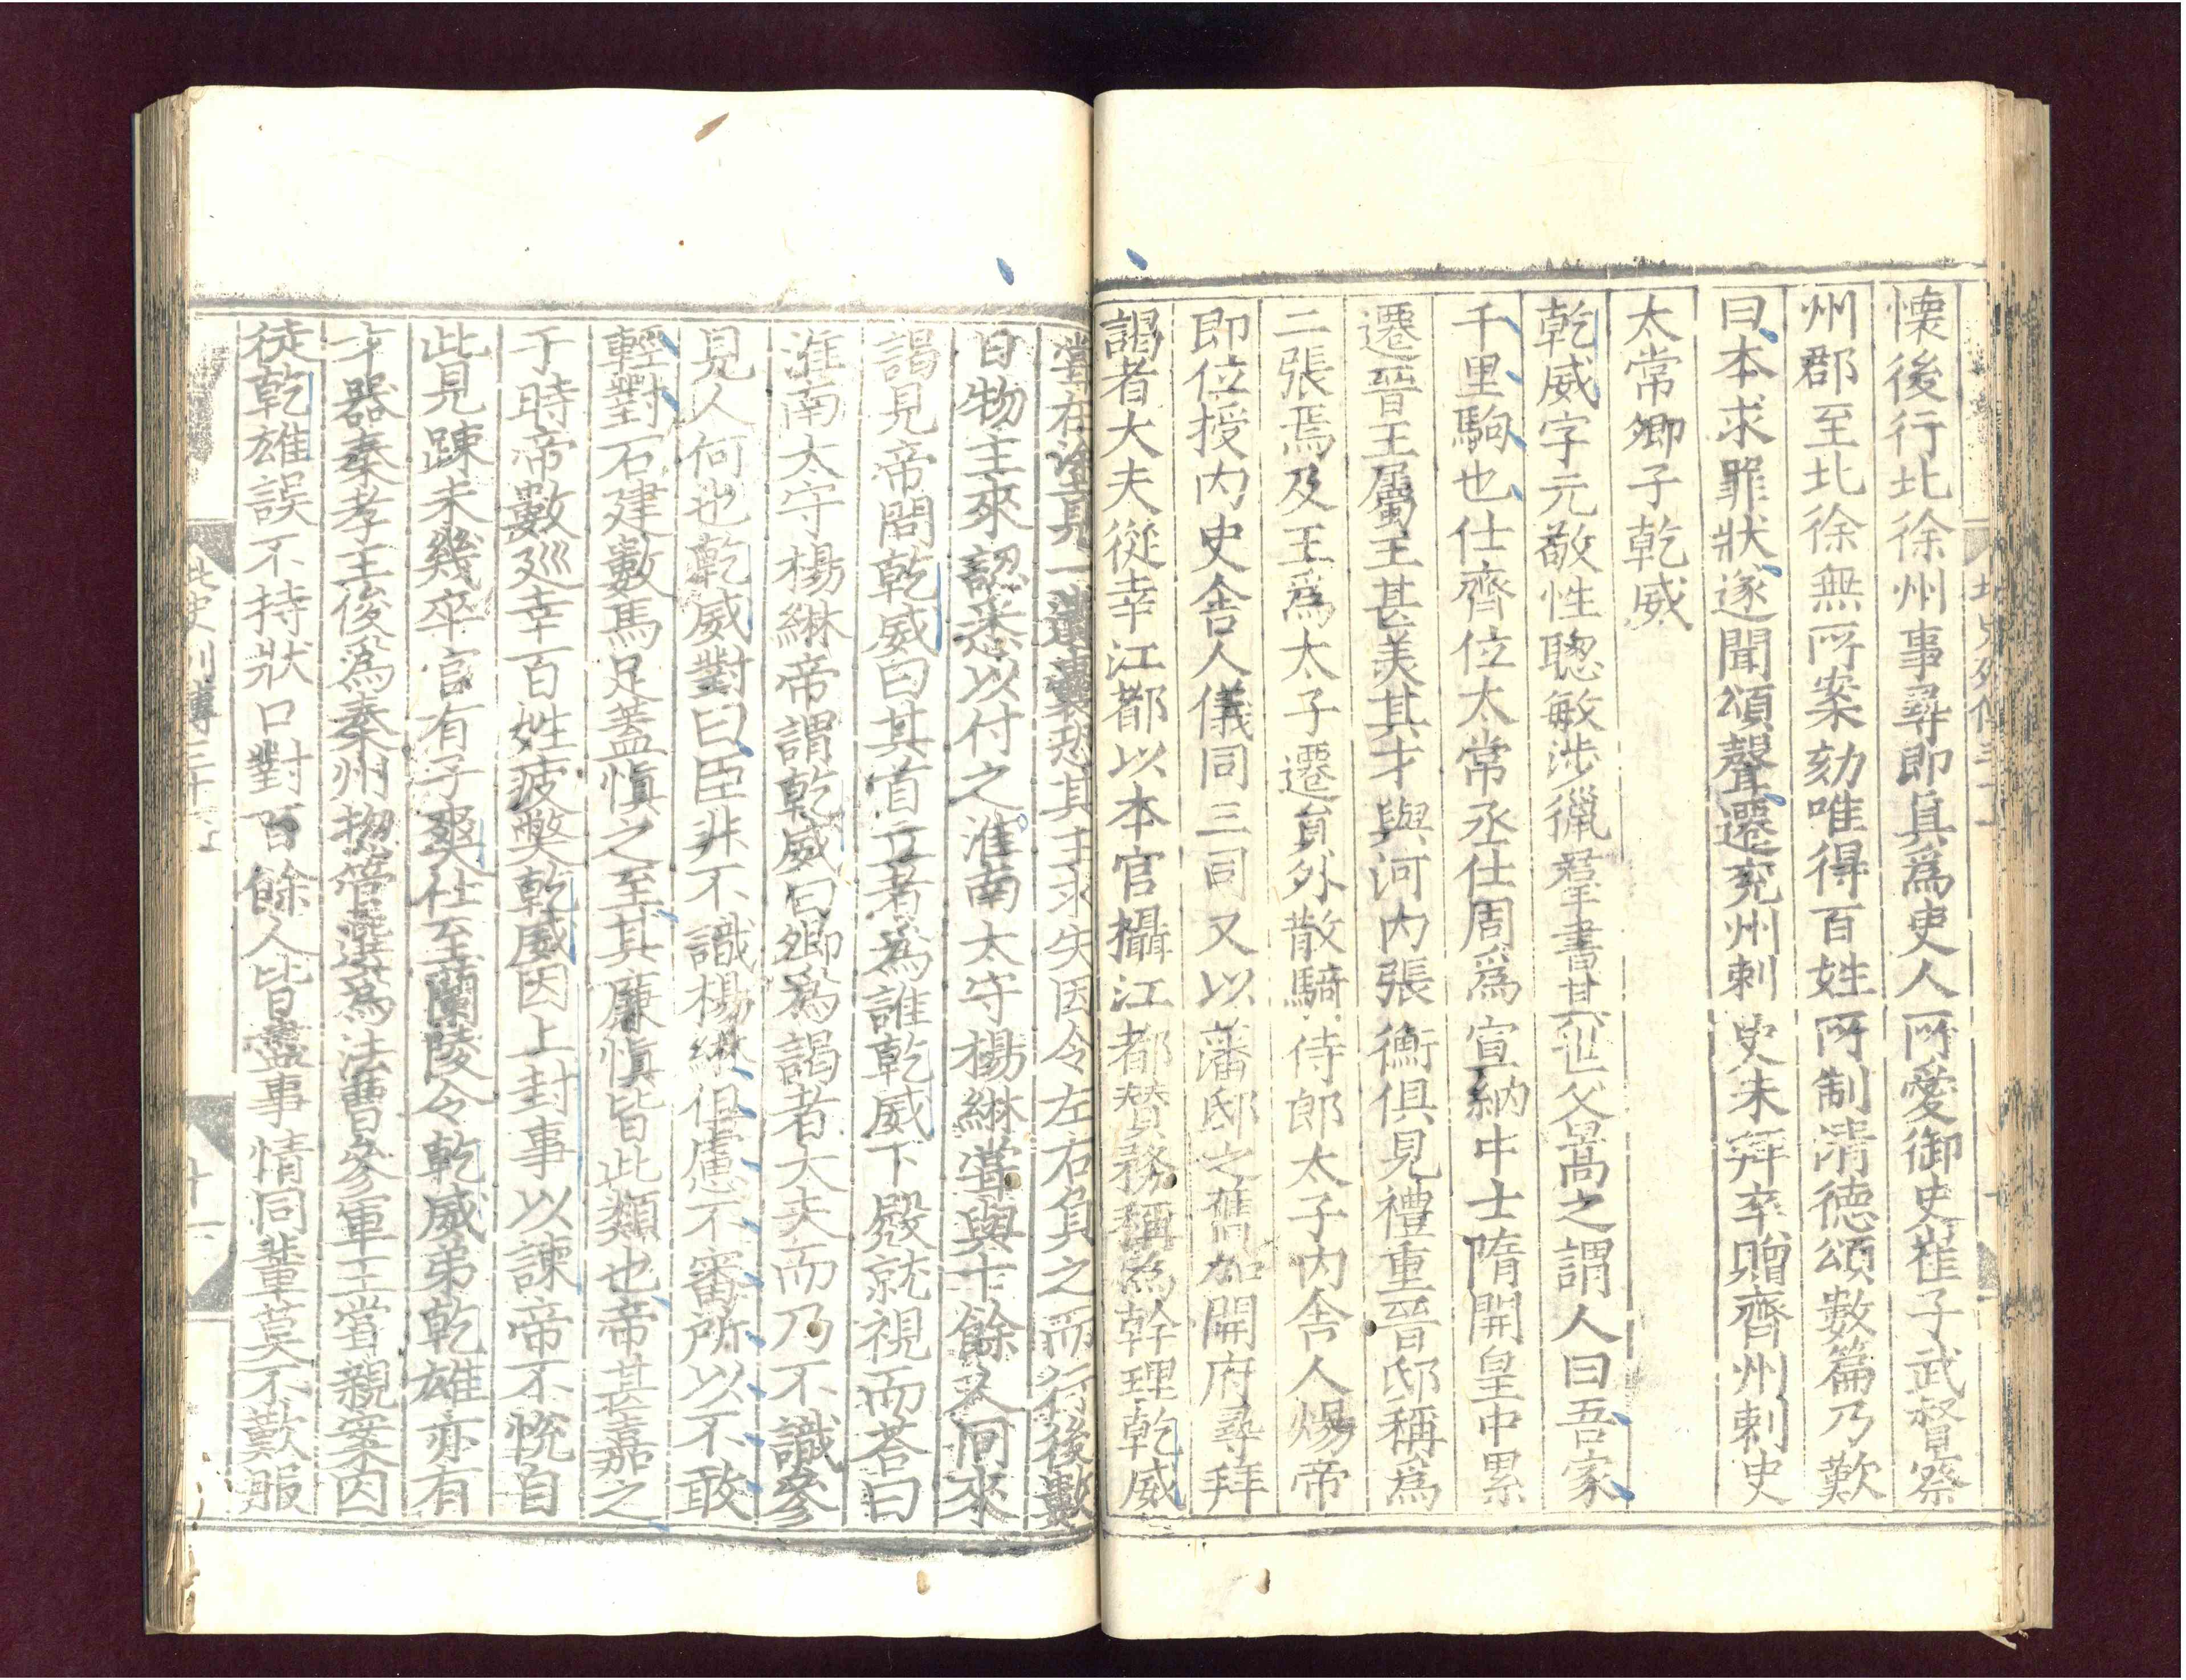 懷後行北徐州事尋即真為吏人所愛御史崔子武督察
州郡至北徐無所案劾唯得百姓所制清德頌數篇乃歎
曰本求罪狀遂聞頌聲遷兗州刺史未拜卒贈齊州刺史
太常卿子乾威
乾威字元敬性聰敏涉獵羣書其世父暠之謂人曰吾家
千里駒也仕齊位太常丞仕周爲宣納中士隋開皇中累
遷晉王屬王甚美其才與河內張衡俱見禮重晉邸稱爲
二張焉及王爲太子遷貟外散騎侍郎太子內舍人煬帝
即位授內史舍人儀同三司又以藩邸之舊加開府尋拜
謁者大夫從幸江都以本官攝江都贊務稱爲幹理乾威
嘗在塗見一遺囊恐其主求失因令左右負之而行後數
日物主來認悉以付之淮南太守楊綝嘗與十餘人同來
謁見帝問乾威曰其首立者爲誰乾威下殿就視而荅曰
淮南太守楊綝帝謂乾威曰卿爲謁者大夫而乃不識參
見人何也乾威對曰臣非不識楊綝但慮不審所以不敢
輕對石建數馬足蓋慎之至其廉慎皆此類也帝甚嘉之
于時帝數巡幸百姓疲獘乾威因上封事以諫帝不恱自
此見踈未幾卒官有子爽仕至蘭陵令乾威弟乾雄亦有
才器秦孝王俊爲秦州揔管選爲法曹參軍王嘗親案囚
徒乾雄誤不持狀口對百餘人皆盡事情同輩莫不歎服
北史列傳三十一
十一